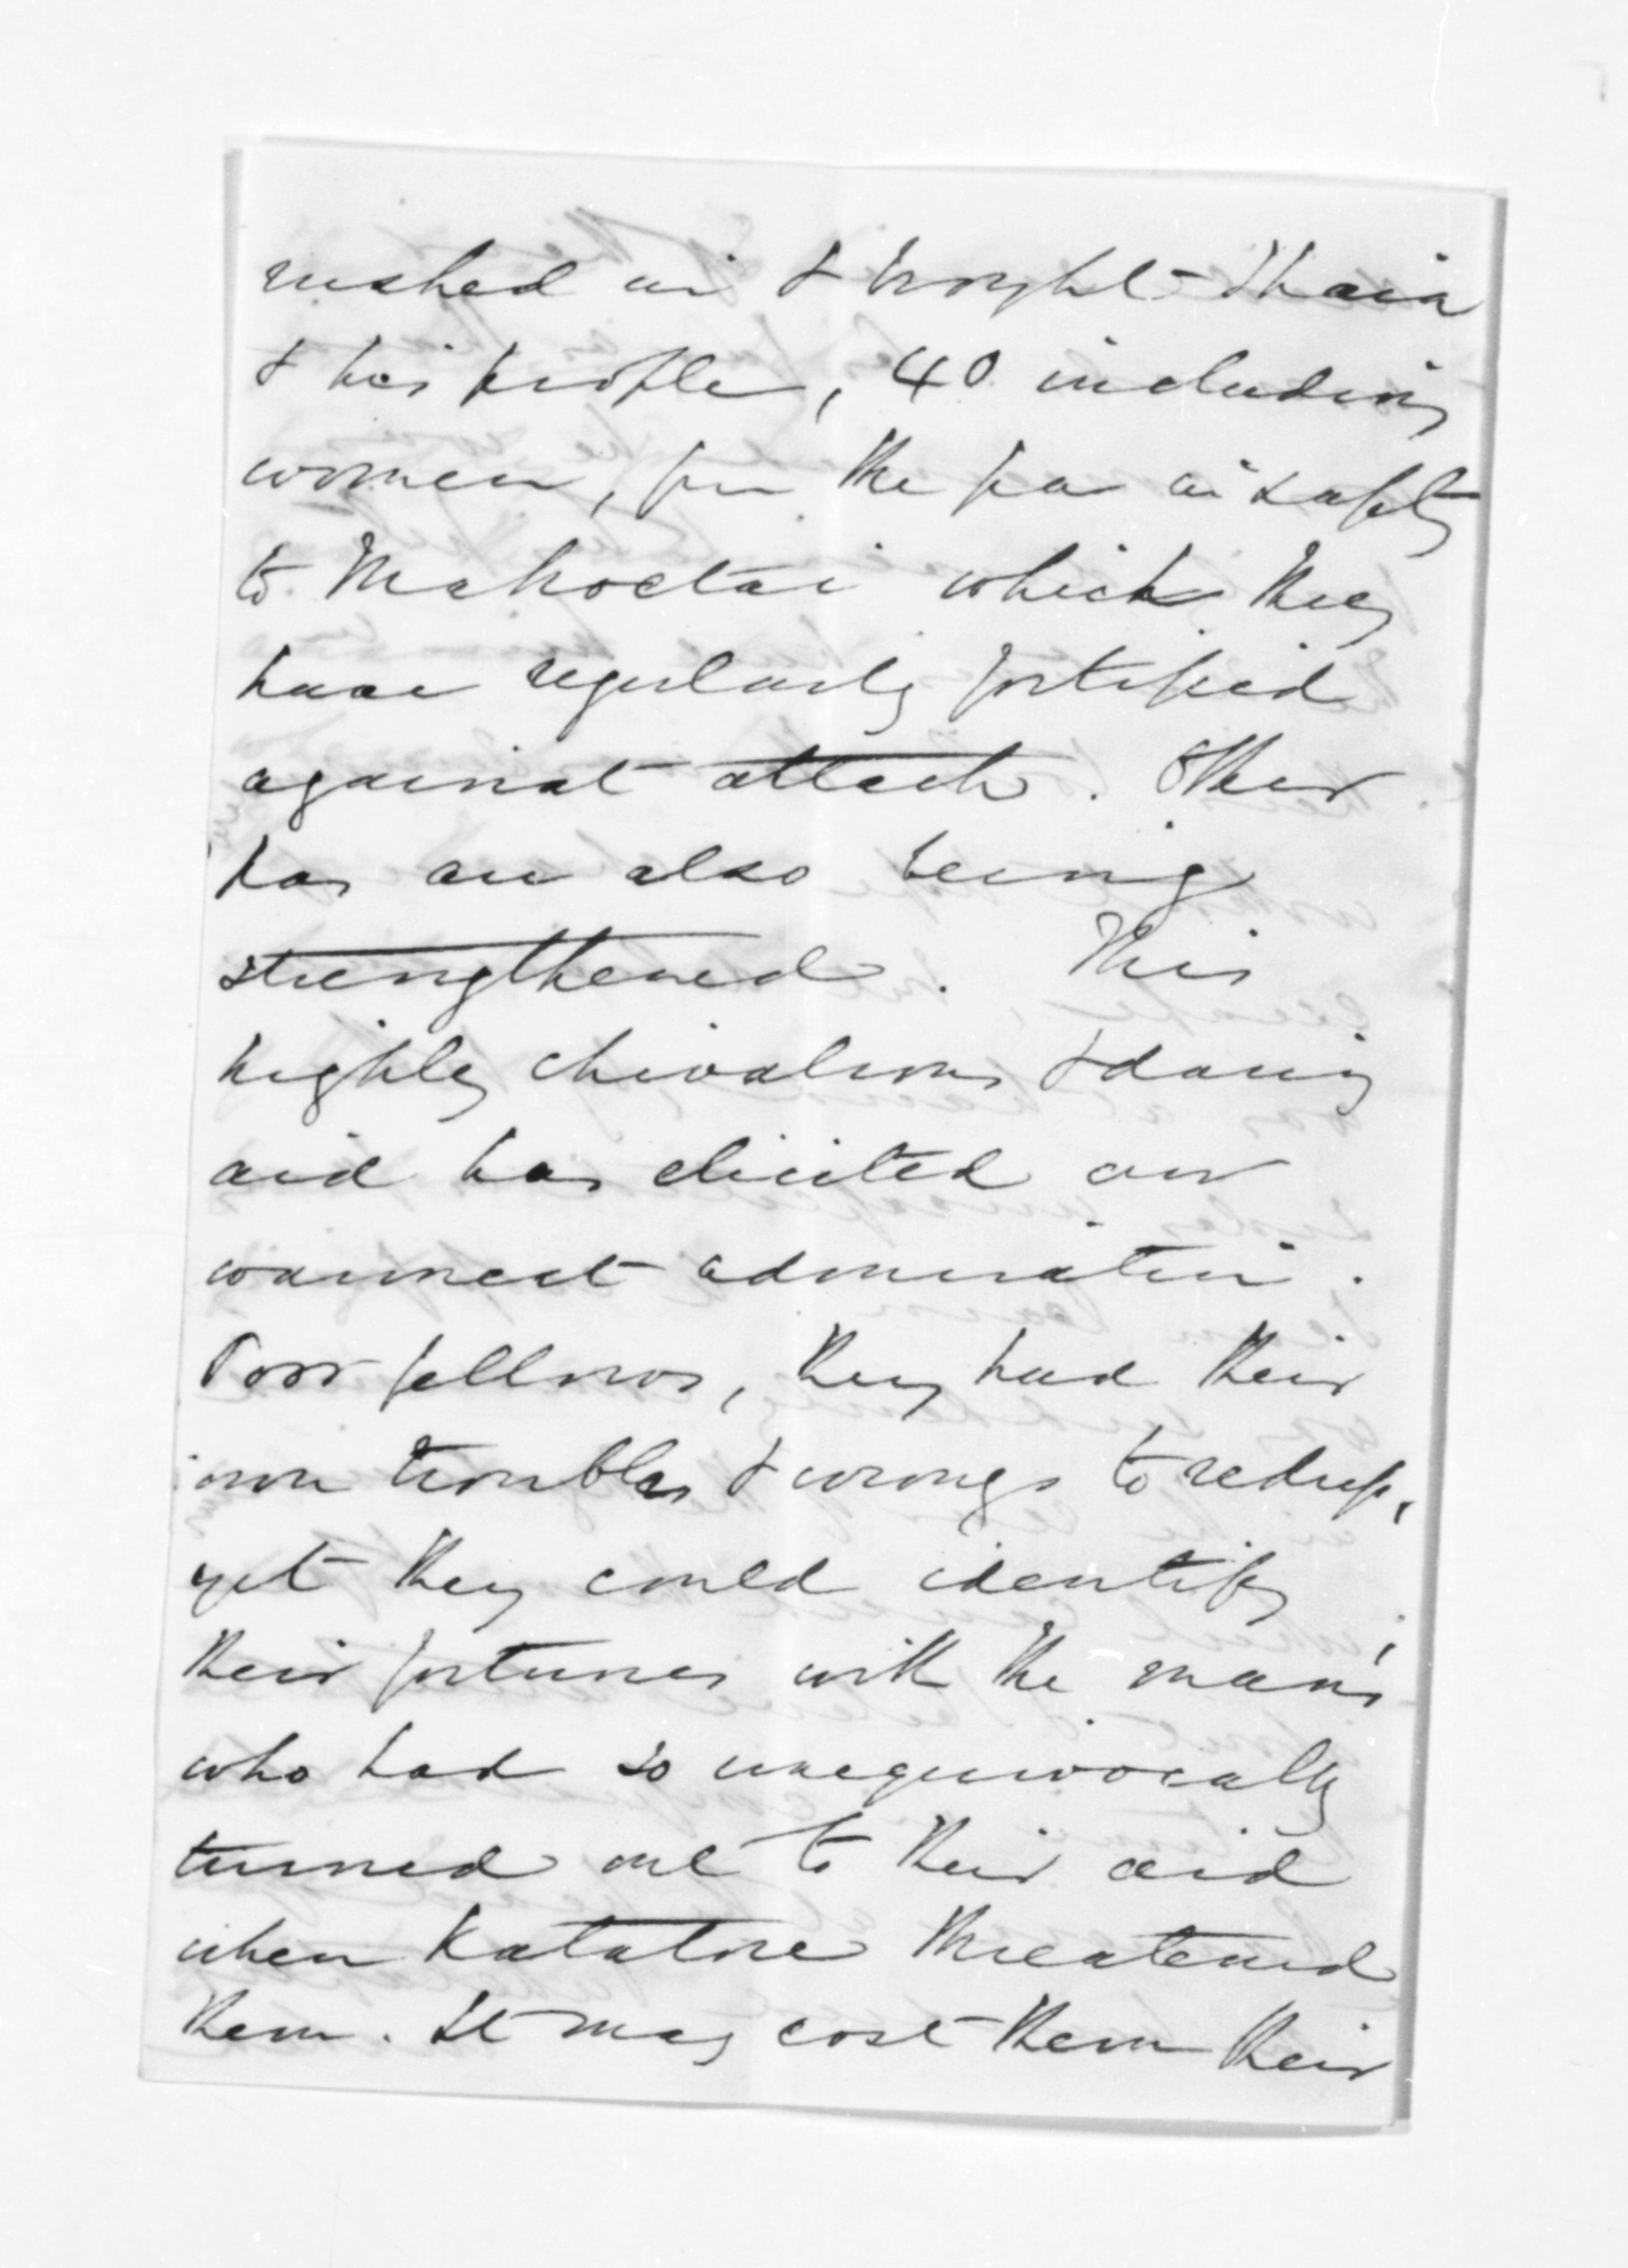 rushed in & brought Ihaia
& his people, 40 including
women, from the pa in safety
to Mahoetai which they
have regularly fortified
against attack. Other
pas are also being
strengthened. This
highly chivalrous & daring
aid has elicited our
warmest admiration.
Poor fellows, they had their
own troubles & wrongs to redress,
yet they could identify
their fortunes with the man
who had so unequivocally
turned out to their aid
when Katatore threatened
them. It may cost them their